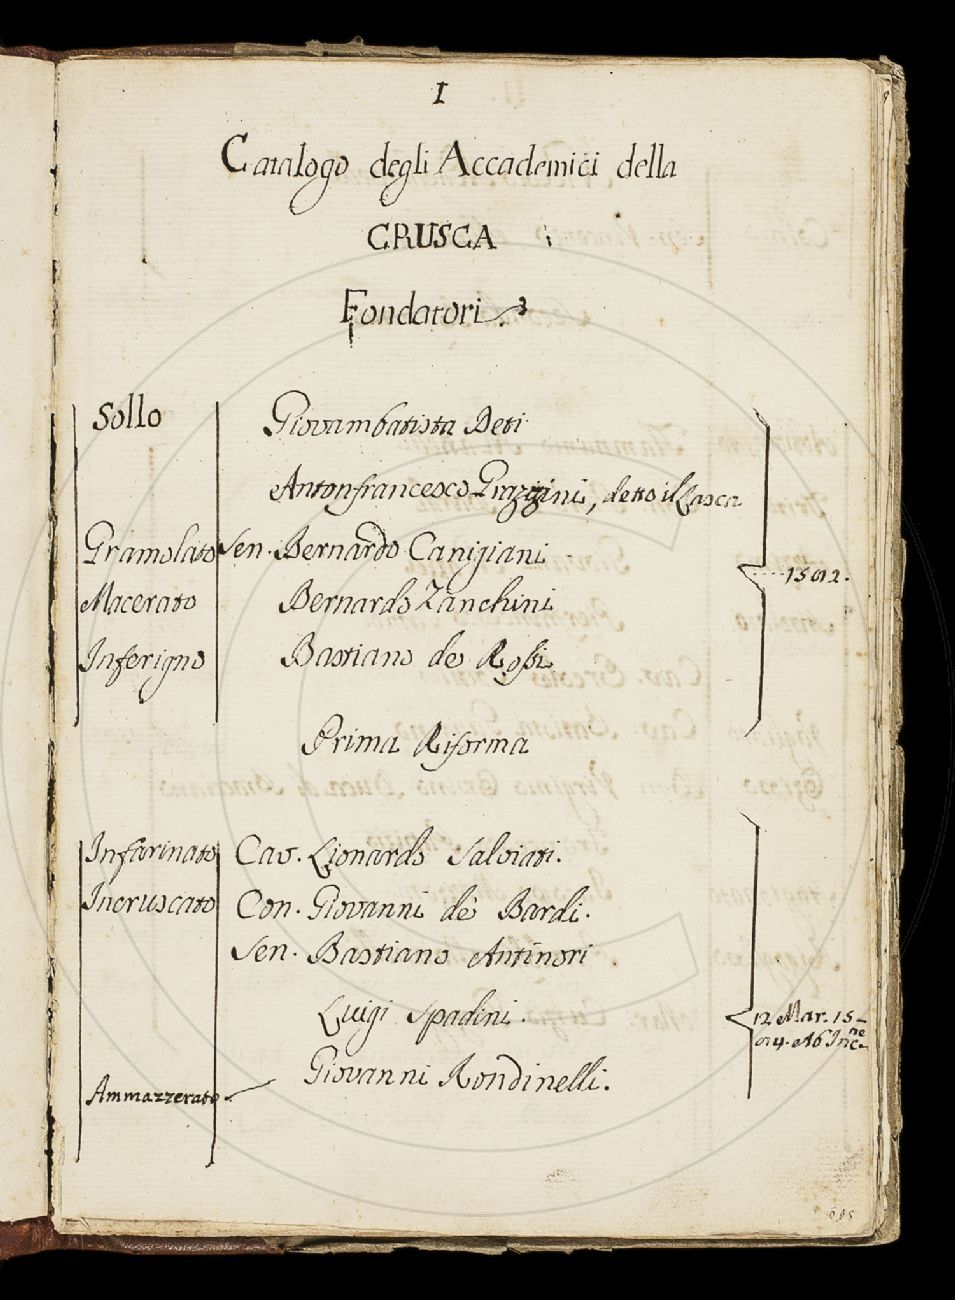 I
Catalogo degli Accademici della
CRUSCA
Fondatori
Sollo Giovambatista Deti
Antonfrancesco Grazzini, detto il Lasca
Gramolato Sen. Bernardo Canigiani
Macerato Bernardo Zanchini
Inferigno Bastiano de Rossi
1582.
Prima Riforma
Infarinato Cav. Lionardo Salviati.
Incruscato Con. Giovanni de Bardi.
Sen. Bastiano Antinori
Luigi Spadini.
12 Mar. 15-
84. Ab Inc.ne
Ammazzerato Giovanni Rondinelli.